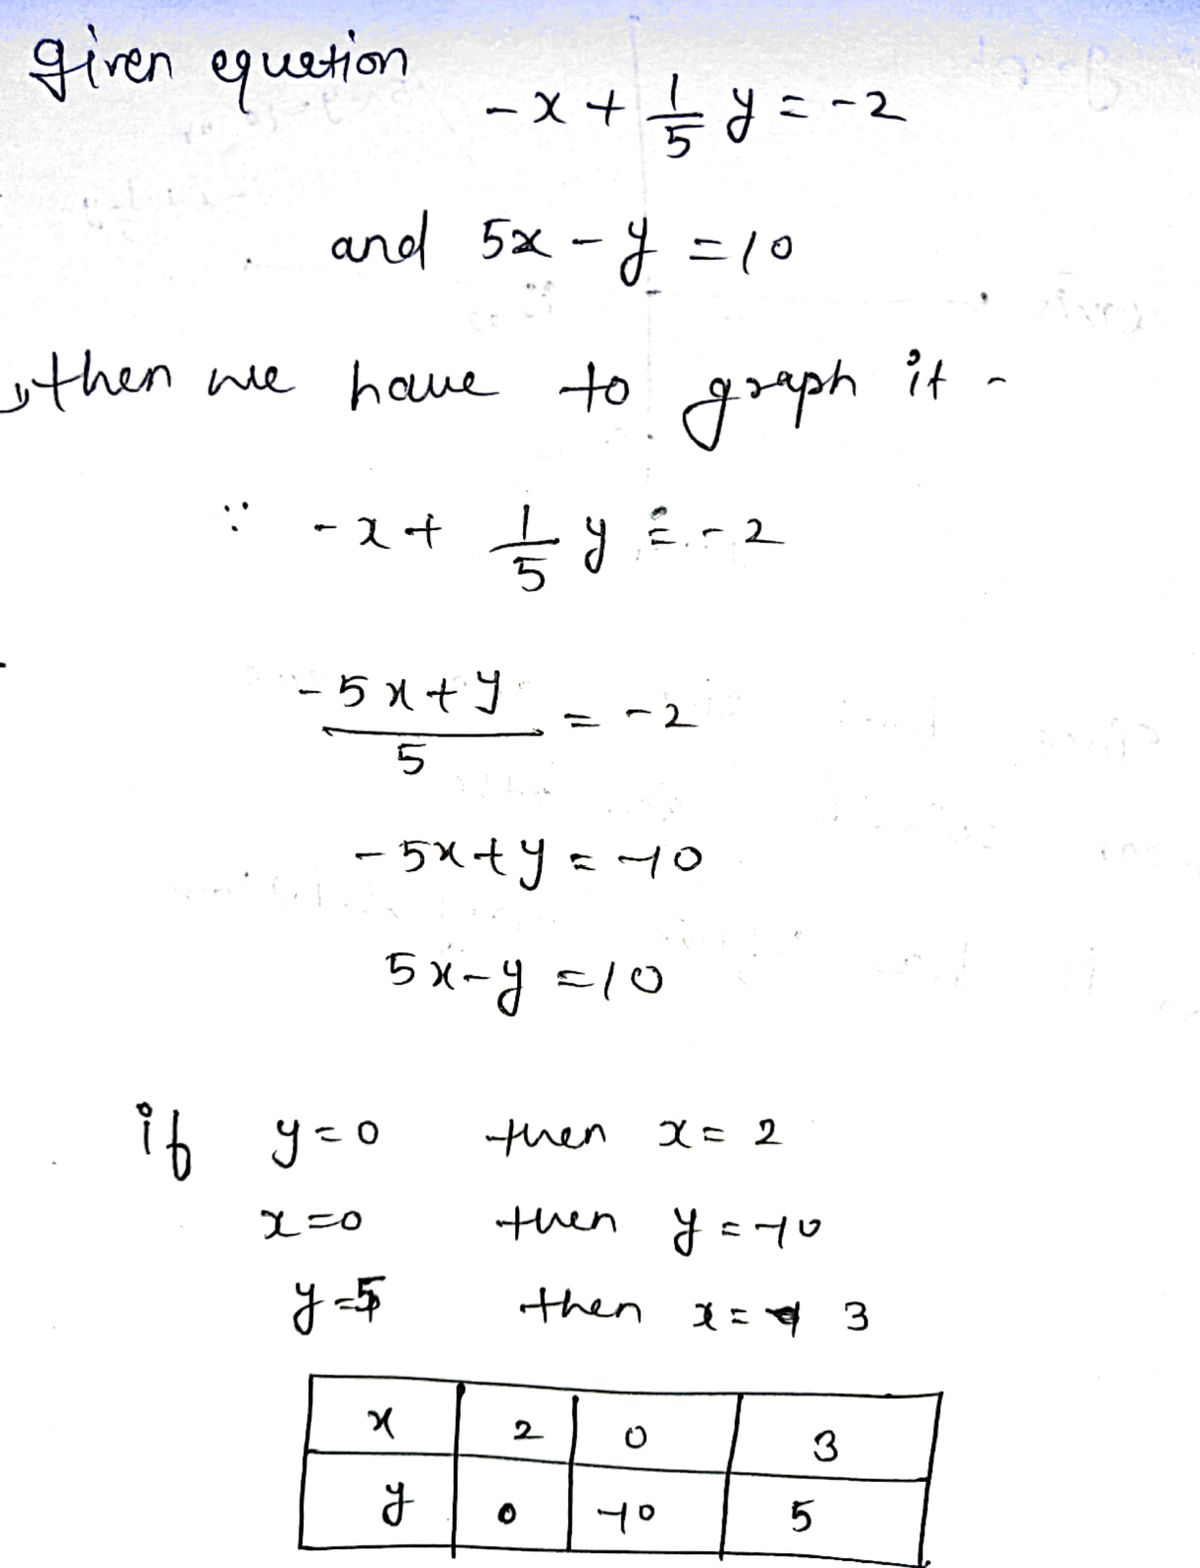 given equetion
-x + 1/5 y = -2
and 5x - y = 10
then we have to graph it -
∵ -x + 1/5 y = -2
(-5x + y)/5 = -2
-5x + y = -10
5x - y = 10
if y = 0 then x = 2
x = 0 then y = -10
y = 5 then x = 3
x 2 0 3
y 0 -10 5